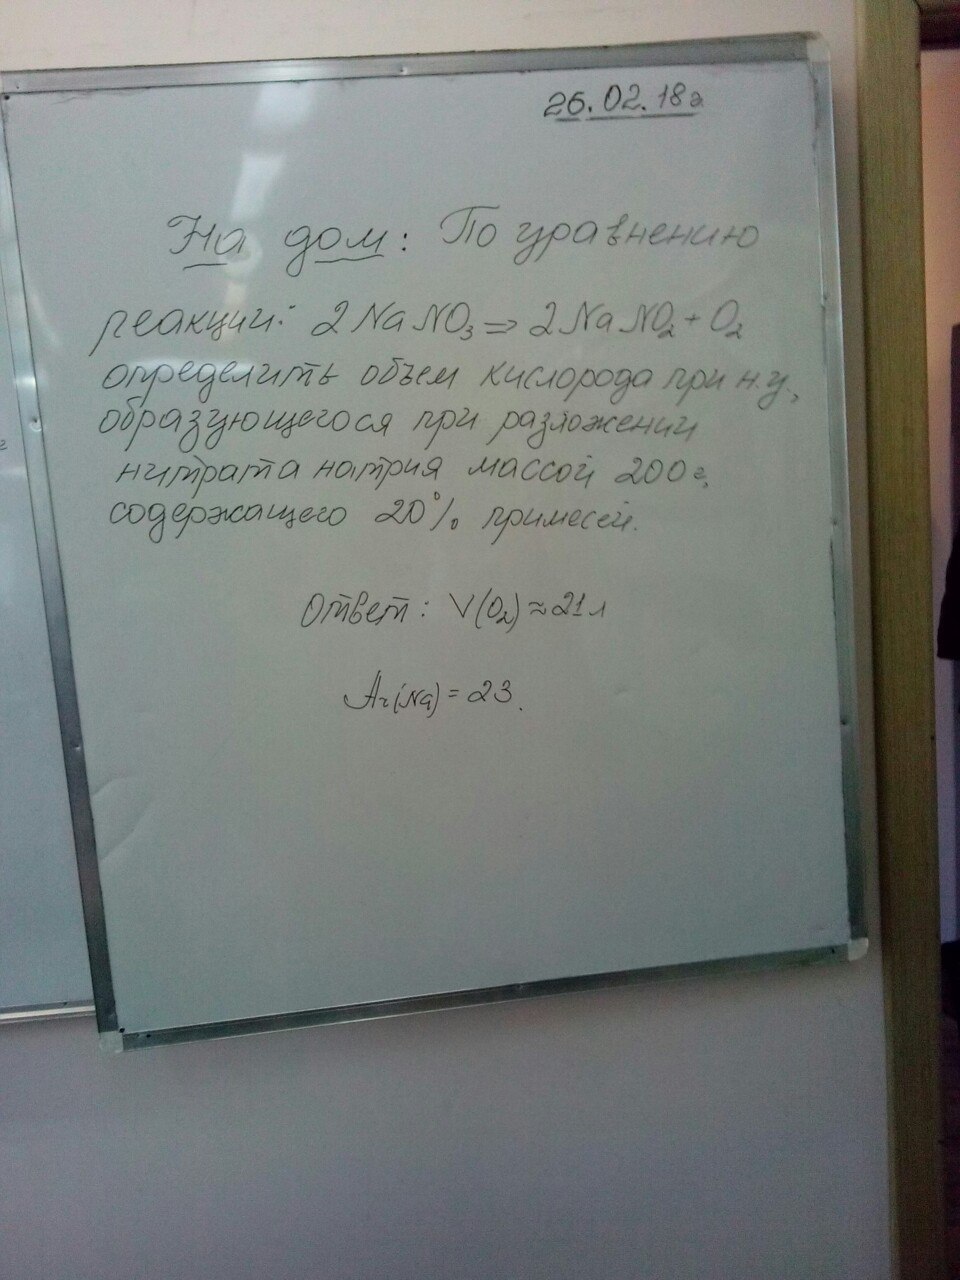 26.02.18г
На дом: По уравнению
реакции: 2NaNO₃ ⇒ 2NaNO₂ + O₂
определить объем кислорода при н.у,
образующегося при разложении
нитрата натрия массой 200г,
содержащего 20% примесей.
Ответ: V(O₂) ≈ 21л
Ar(Na) = 23.